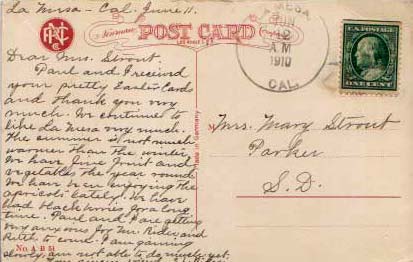 La Mesa - Cal. June 11.
POST CARD
Dear Mrs. Strout.
Paul and I received
your pretty Easter Cards
and thank you very
much. We continue to
like La Mesa very much.
The summer is not much
warmer than the winter.
We have fine fruit and
vegetables the year round.
We have been enjoying the
apricots lately. We have
had blackberries for a long
time. Paul and I are getting
very anxious for Mr. Rider and
Ruth to come. I am gaining
slowly, am not able to do much yet.
No. A B 51
Made in Germany
LA MESA
JUN
12
A M
1910
CAL.
U.S. POSTAGE
ONE CENT
Mrs. Mary Strout
Parker
S.D.